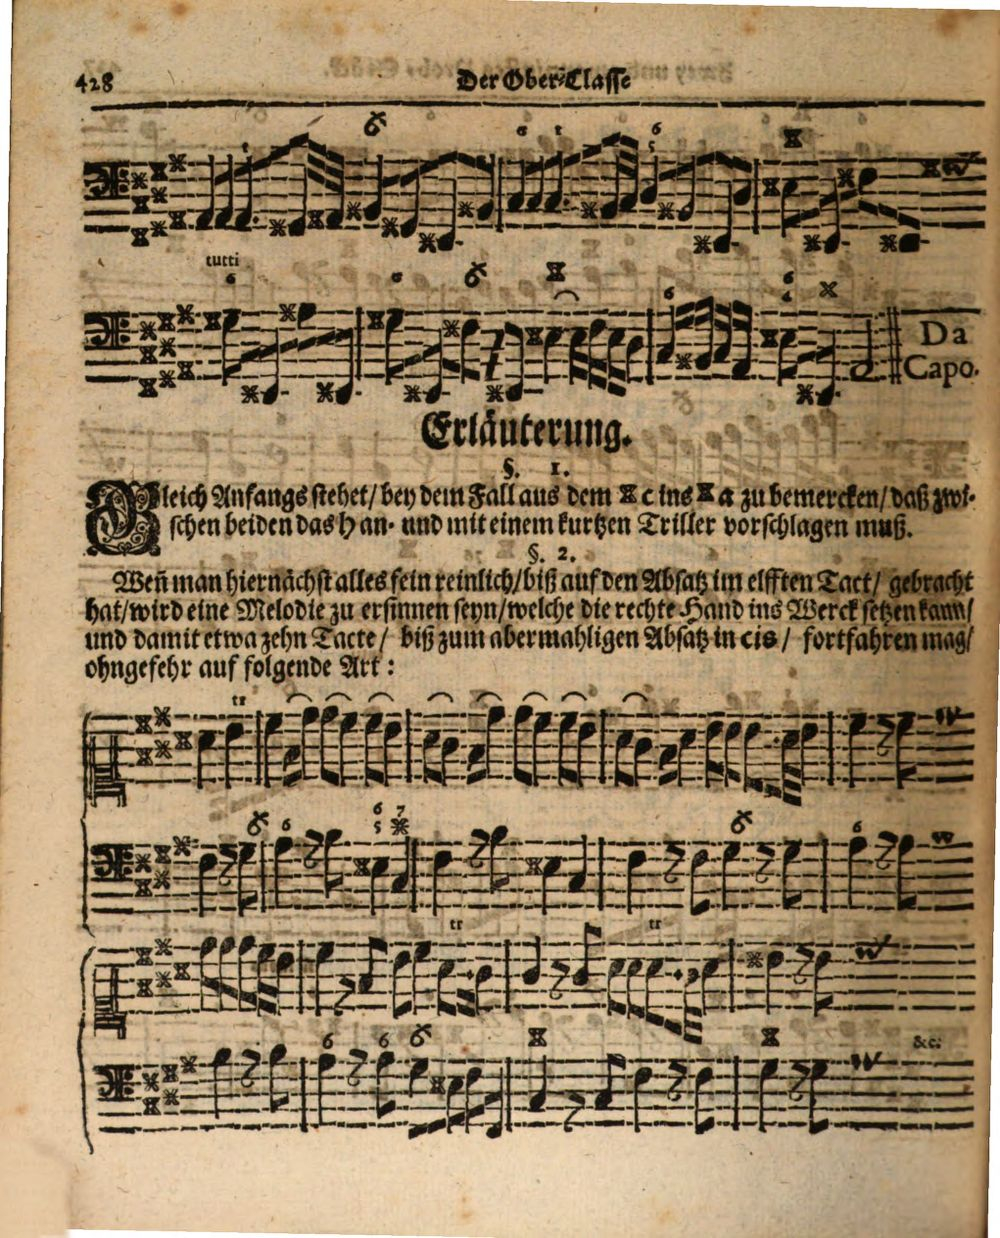 428 Der Ober-Classe
tutti
Da
Capo.
Erläuterung.
§. 1.
Gleich Anfangs stehet/ bey dem Fall aus dem c ins a zu bemercken/ daß zwi-
schen beiden das h an- und mit einem kurtzen Triller vorschlagen muß.
§. 2.
Weñ man hiernächst alles fein reinlich/ biß auf den Absatz im elfften Tact/ gebracht
hat/ wird eine Melodie zu ersinnen seyn/ welche die rechte Hand ins Werck setzen kann/
und damit etwa zehn Tacte/ biß zum abermahligen Absatz in cis/ fortfahren mag/
ohngefehr auf folgende Art:
tr
tr tr
&c: